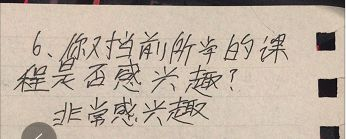 6、你对当前所学的课
程是否感兴趣?
非常感兴趣